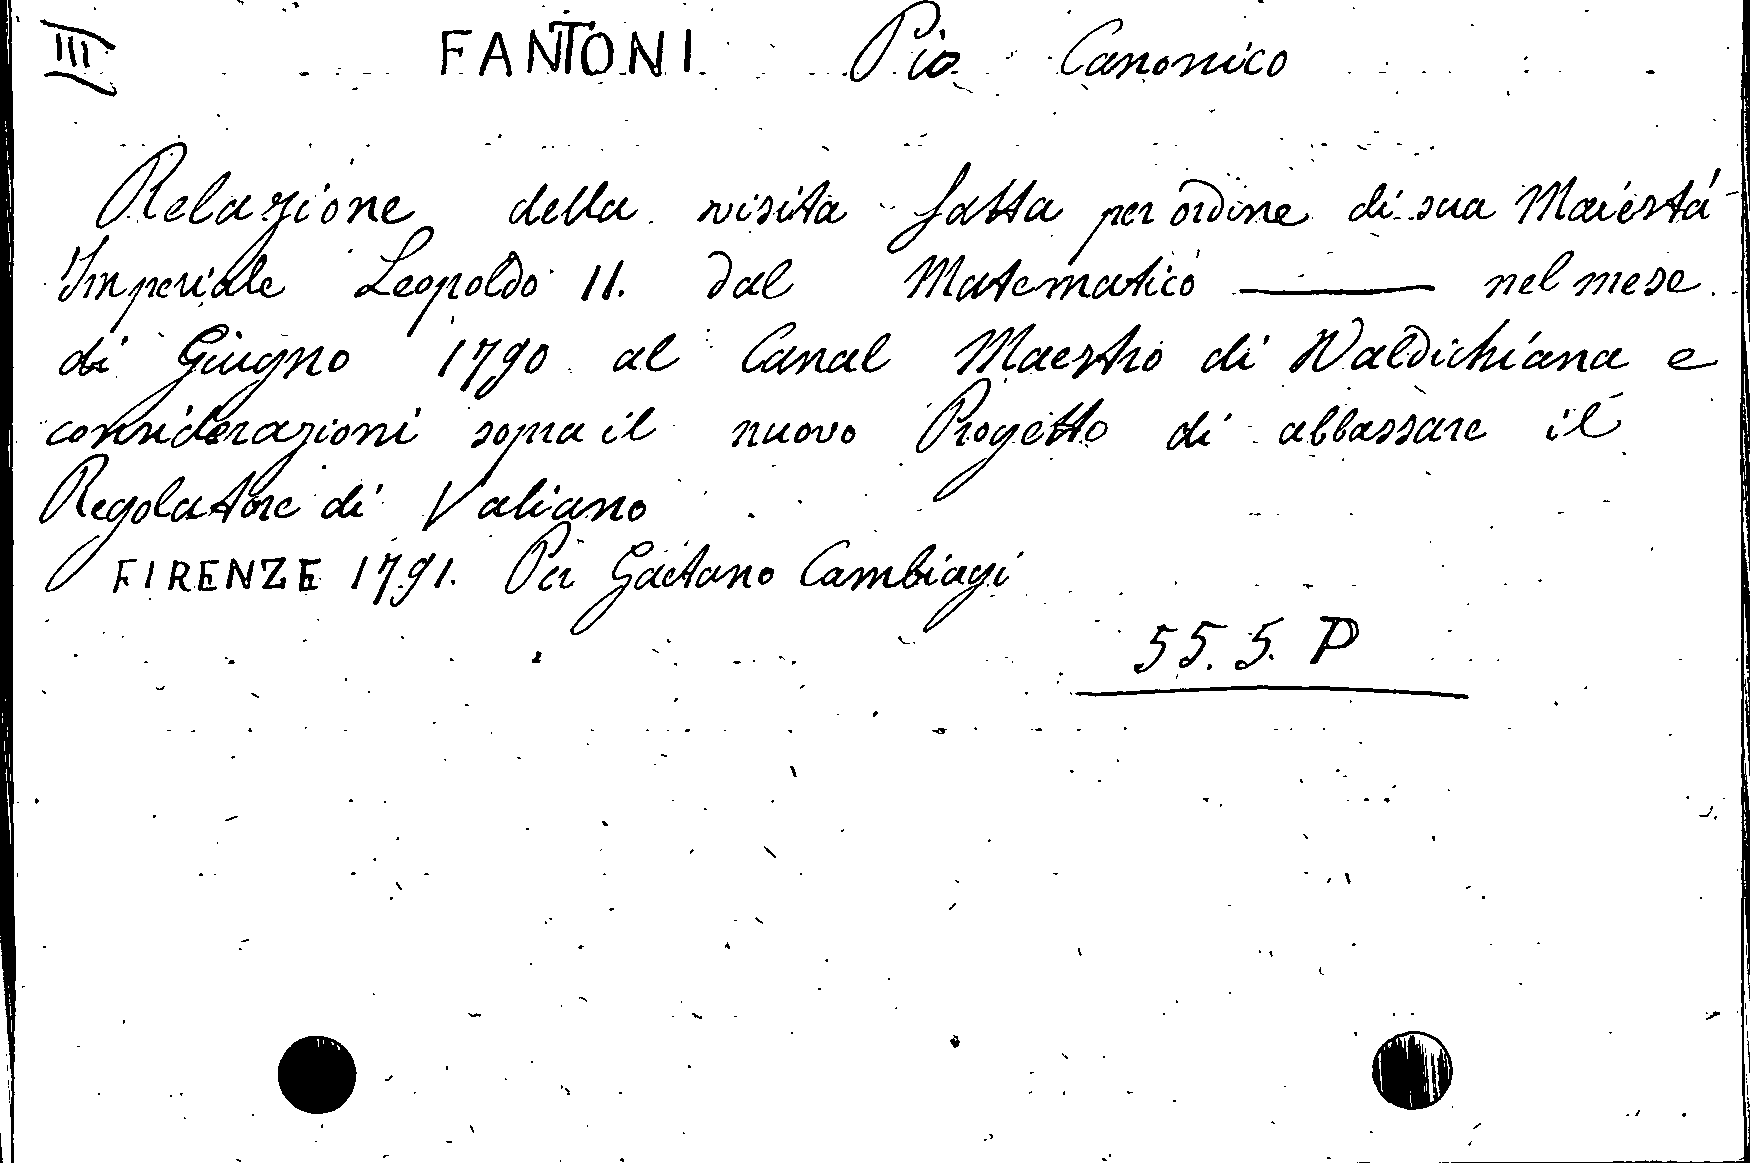 III FANTONI Pio Canonico
Relazione della visita fatta per ordine di sua Maiestá
Imperiale Leopoldo II. dal Matematico ——— nel mese
di Giugno 1790 al Canal Maestro di Valdichiana e
considerazioni sopra il nuovo Progetto di abbassare il
Regolatore di Valiano
FIRENZE 1791. Per Gaetano Cambiagi
55. 5. P